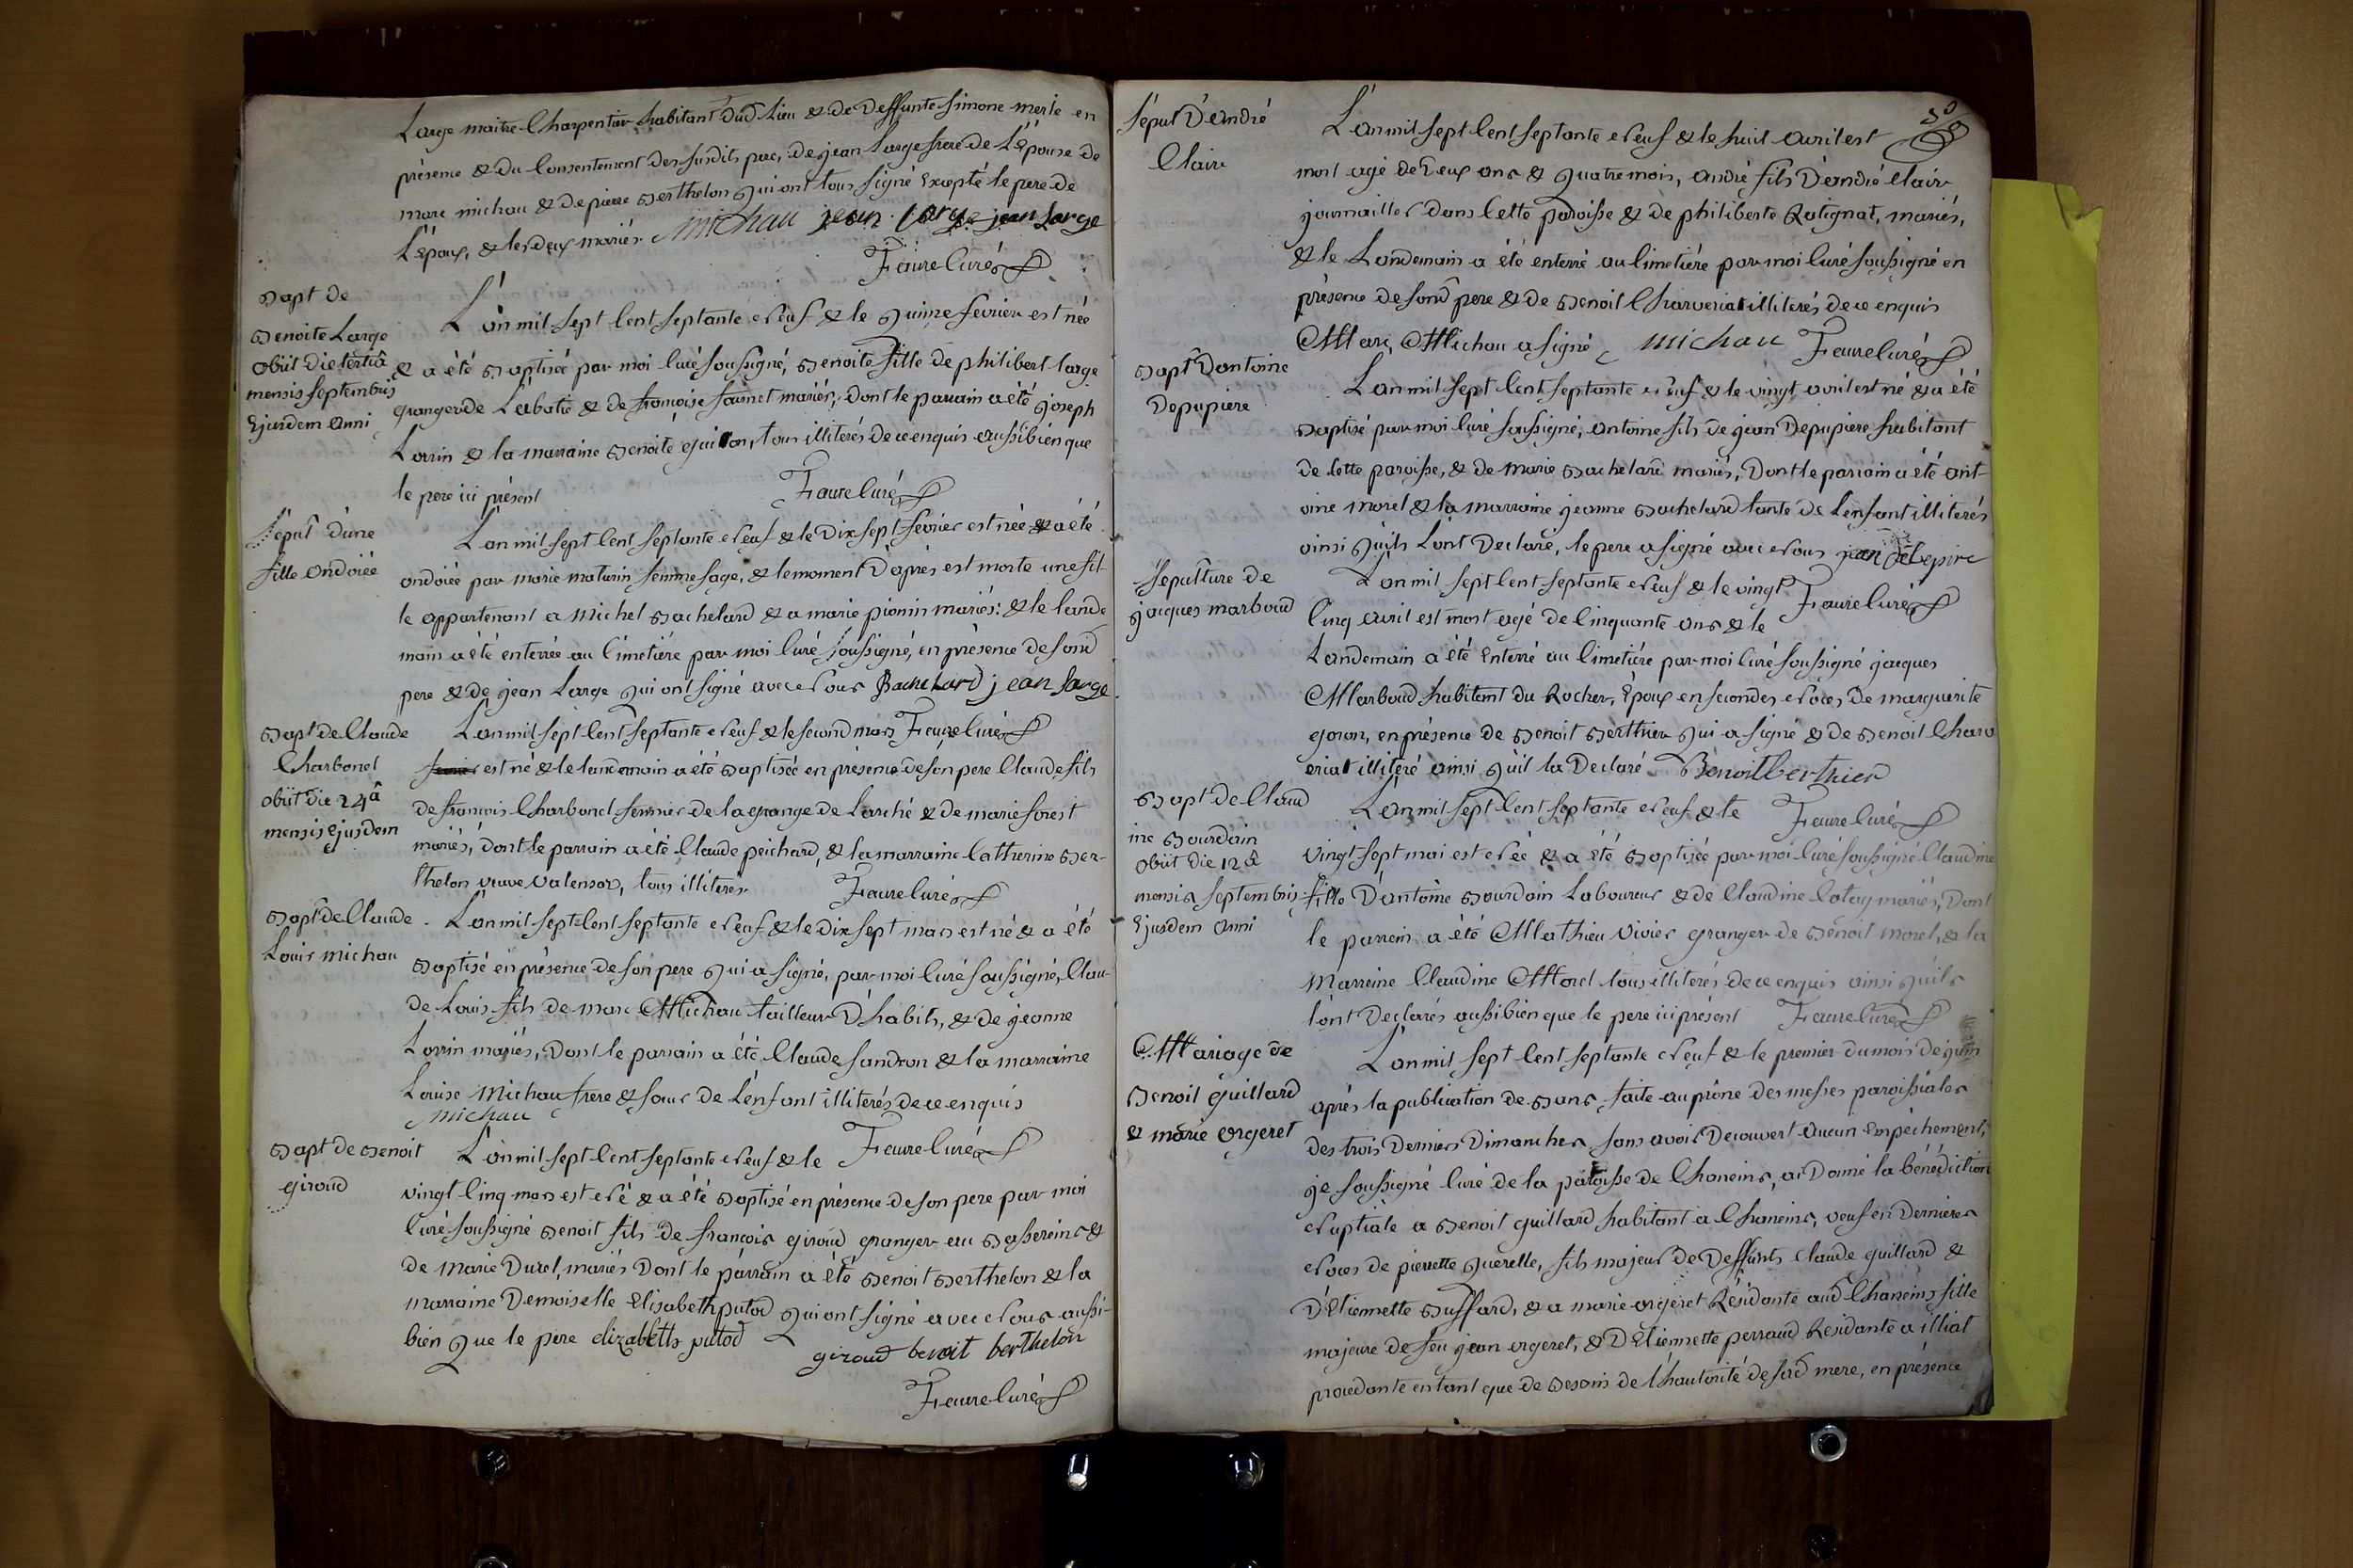 Large maitre Charpentier habitant dud Lieu & de Deffunte Simone merle en
présence & du Consentement des susdits pere, de jean Large frere de L'épouse de
marc michau & de pierre Berthelon qui ont tous signé Excepté le pere de
L'époux, & les deux mariés. michau jean large jean large
Faure Curé
Bapt de
Benoite Large
obiit die tertiâ
mensis septembris
Ejusdem anni
L'an mil sept Cent septante neuf & le quinze février est née
& a été Baptisée par moi Curé soussigné, Benoite fille de philibert large
granger de Labatie & de françoise farnet mariés, dont le parrain a été joseph
Lorrin & la marraine Benoite guillon, tous illiterés de ce enquis aussi bien que
le pere ici présent
Faure Curé
Sépult d'une
fille ondoiée
L'an mil sept Cent septante neuf & le Dix sept fevrier est née & a été
ondoiée par marie maturin femme sage, & le moment D'après est morte une fil-
le appartenant a Michel Bachelard & a marie pionin mariés: & le lande
main a été enterrée au Cimetière par moi Curé soussigné, en présence de sond
pere & de jean Large qui ont signé avec nous Bachelard jean large
Faure Curé
Bapt de Claude
Charbonel
obiit die 24â
mensis ejusdem
L'an mil sept Cent septante neuf & le second mars
fevrier est né & le landemain a été Baptisée en présence de son pere Claude fils
de françois Charbonel fermier de la grange de Larché & de marie forest
mariés, dont le parrain a été Claude peichard, & la marraine Catherine Ber-
thelon veuve Valensor, tous illiterés
Faure Curé
Bapt de Claude
Louis michau
L'an mil sept Cent septante neuf & le dix sept mars est né & a été
Baptisé en présence de son pere qui a signé, par moi Curé soussigné, Clau-
de Louis fils de marc Michau tailleur D'habits, & de jeanne
Lorrin mariés, Dont le parrain a été Claude Sandron & la marraine
Louise Michau frere & soeur de L'enfant illiterés de ce enquis
michau
Faure Curé
Bapt de Benoit
giroud
L'an mil sept Cent septante neuf & le
vingt Cinq mars est né & a été Baptisé en présence de son pere par moi
Curé soussigné Benoit fils de françois giroud granger au Basserins &
de Marie Duret, mariés Dont le parrain a été Benoit Berthelon & la
marraine Demoiselle Elisabeth putod qui ont signé avec nous aussi-
bien que le pere elizabeth putod
giroud benoit berthelon
Faure Curé
Sépul D'andré
Clair
L'an mil sept Cent septante neuf & le huit avril est
mort agé de Deux ans & quatre mois, andré fils D'andré Clair
journaillier dans Cette paroisse & de philiberte Ratignat, mariés,
& le Landemain a été enterré au Cimetière par moi Curé soussigné en
présence de sond pere & de Benoit Charveriat illiterés de ce enquis
Marc Michau a signé michau Faure Curé
Bapt D'antoine
Depupiere
L'an mil sept Cent septante neuf & le vingt avril est né & a été
Baptisé par moi Curé soussigné, antoine fils de jean Depupiere habitant
de Cette paroisse, & de Marie Bachelard mariés, Dont le parrain a été ant
oine morel & la marraine jeanne Bachelard tante de L'enfant illiterés
ainsi qu'ils L'ont Declaré, le pere a signé avec nous jean
Faure Curé
Sepulture de
jacques marboud
L'an mil sept Cent septante neuf & le vingt
Cinq avril est mort agé de Cinquante ans & le
Landemain a été Enterré au Cimetière par moi Curé soussigné jacques
Marboud habitant du Rocher, Epoux en secondes noces de marguerite
goron, en présence de Benoit Berthier qui a signé & de Benoit Charv
eriat illiteré ainsi qu'il la Declaré Benoit berthier
Faure Curé
Bapt de Claud
ine Bourdoin
obiit die 12â
mensis septembris
Ejusdem anni
L'an mil sept Cent septante neuf & le
vingt sept mai est née & a été Baptisée par moi Curé soussigné Claudine
fille D'antoine Bourdoin Laboureur & de Claudine Catay mariés, Dont
le parrein a été Mathieu Vivier granger de Benoit morel, & la
Marreine Claudine Morel tous illiterés de ce enquis ainsi qu'ils
l'ont Declarés aussi bien que le pere ici présent Faure Curé
Mariage de
Benoit guillard
& marie orgeret
L'an mil sept Cent septante neuf & le premier du mois de juin
après la publication de Bans, faite au prône des messes paroissiales
des trois Derniers Dimanches sans avoir Decouvert aucun Empéchement,
je soussigné Curé de la paroisse de Chaneins, ai Donné la bénédiction
nuptiale a Benoit guillard habitant a Chaneins, veuf en Dernieres
noces de pierrette querelle, fils majeur de Deffunts Claude guillard &
D'Etiennette Buffard, & a marie orgeret Résidante aud Chaneins fille
majeure de feu jean orgeret, & D'Etiennette perraud Residante a illiat
procedante en tant que de Besoin de l'hautorité de sad mere, en présence